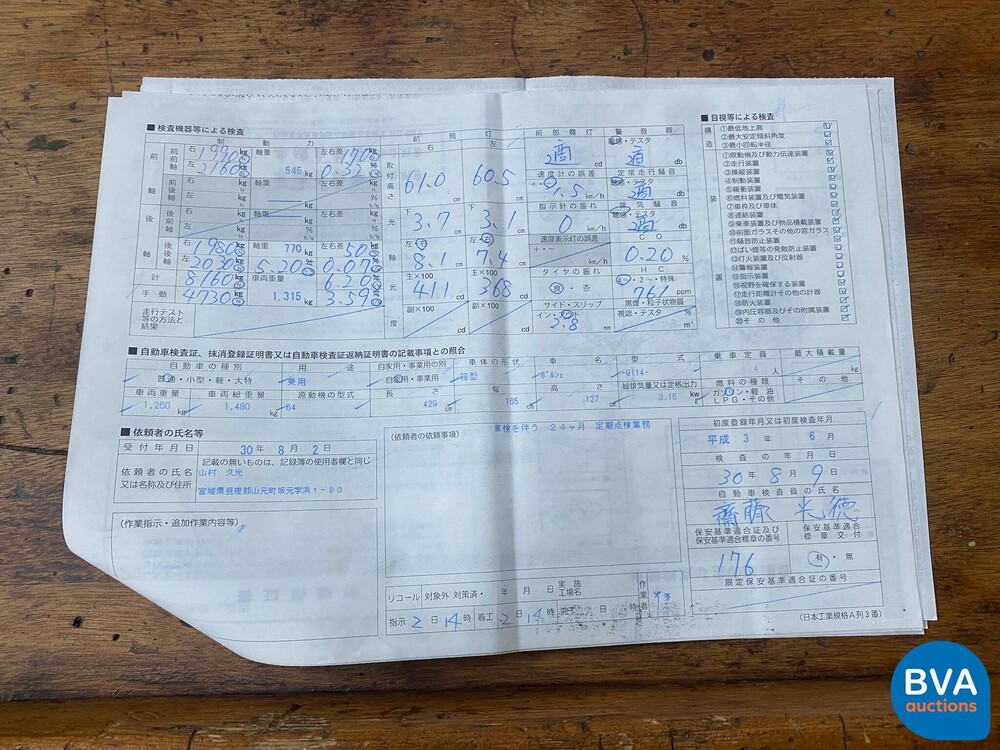 ■ 検査機器等による検査
制動力
前照灯
前部霧灯
警音器
右 1970 kg 軸重 左右差 170 kg
左 2160 kg 545 kg 0.32
聴感・テスタ
適 cd 適 db
取付高さ 61.0 cm 60.5 cm
速度計の誤差
定常走行騒音
聴感・テスタ
km/h db
指示計の振れ
排気騒音
聴感・テスタ
0 km/h 適 db
下 3.7 下 3.1
左 8.1 左 7.4
速度表示灯の誤差
CO
km/h 0.20 %
右 1980 kg 軸重 770 kg 左右差 50 kg
左 2030 kg 5.20 0.07
計 8160 車両重量 6.20
手動 4730 1,315 kg 3.59
主×100 主×100
411 368
副×100 副×100
cd cd
タイヤの振れ
HC
良・否
4・2・特殊
761 ppm
サイド・スリップ
黒煙・粒子状物質
イン・アウト
視認・テスタ
2.8 mm
走行テスト
等の方法と
結果
■ 目視等による検査
構造
①最低地上高
②最大安定傾斜角度
③最小回転半径
装置
①原動機及び動力伝達装置
②走行装置
③操縦装置
④制動装置
⑤緩衝装置
⑥燃料装置及び電気装置
⑦車枠及び車体
⑧連結装置
⑨乗車装置及び物品積載装置
⑩前面ガラスその他の窓ガラス
⑪騒音防止装置
⑫ばい煙等の発散防止装置
⑬灯火装置及び反射器
⑭警報装置
⑮指示装置
⑯視野を確保する装置
⑰走行距離計その他の計器
⑱防火装置
⑲内圧容器及びその附属装置
⑳その他
■ 自動車検査証、抹消登録証明書又は自動車検査証返納証明書の記載事項との照合
自動車の種別 用途 自家用・事業用の別 車体の形状 車名 型式 乗車定員 最大積載量
普通・小型・軽・大特 乗用 自家用・事業用 箱型 ポルシェ -9114- 4人 kg
車両重量 車両総重量 原動機の型式 長さ 幅 高さ 総排気量又は定格出力 燃料の種類 その他
1,260 kg 1,480 kg 64 429 cm 165 cm 127 cm 3.16 kw ガソリン・軽油
LPG・その他
■ 依頼者の氏名等
受付年月日 30年 8月 2日
記載の無いものは、記録簿の使用者欄と同じ
依頼者の氏名 山村 久光
又は名称及び住所 宮城県亘理郡山元町坂元字浜1-83
(作業指示・追加作業内容等)
(依頼者の依頼事項) 車検を伴う 24ヶ月 定期点検業務
リコール 対象外 対策済・ 年 月 日 実施工場名
作業者
指示 2日 14時 着工 2日 14時 完了 日 時
初度登録年月又は初度検査年月
平成 3年 6月
検査の年月日
30年 8月 9日
自動車検査員の氏名
齋藤 光徳
保安基準適合証及び
保安基準適合標章の番号
保安基準適合
標章交付
176 有・無
限定保安基準適合証の番号
(日本工業規格A列3番)
BVA
auctions